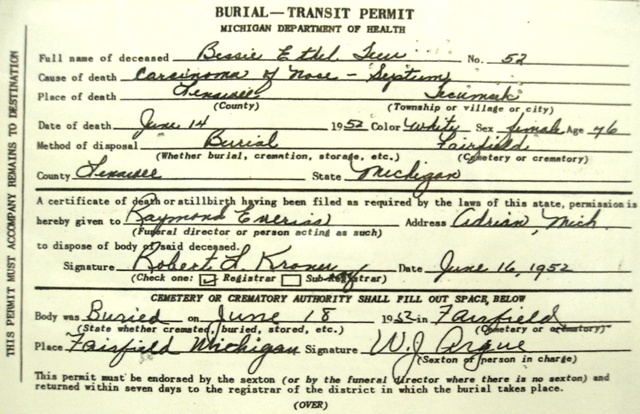 BURIAL—TRANSIT PERMIT
MICHIGAN DEPARTMENT OF HEALTH
Full name of deceased Bessie Ethel No. 52
Cause of death Carsinoma of Nose - Septum
Place of death Lenawee Tecumseh
(County) (Township or village or city)
Date of death June 14 1952 Color White Sex female Age 76
Method of disposal Burial Fairfield
(Whether burial, cremation, storage, etc.) (Cemetery or crematory)
County Lenawee State Michigan
A certificate of death or stillbirth having been filed as required by the laws of this state, permission is
hereby given to Raymond Address Adrian, Mich.
(Funeral director or person acting as such)
to dispose of body of said deceased.
Signature Robert L Date June 16, 1952
(Check one: ✓ Registrar Sub-Registrar)
CEMETERY OR CREMATORY AUTHORITY SHALL FILL OUT SPACE BELOW
Body was Buried on June 18 1952 in Fairfield
(State whether cremated, buried, stored, etc.) (Cemetery or crematory)
Place Fairfield Michigan Signature W. J. Argue
(Sexton or person in charge)
This permit must be endorsed by the sexton (or by the funeral director where there is no sexton) and
returned within seven days to the registrar of the district in which the burial takes place.
(OVER)
THIS PERMIT MUST ACCOMPANY REMAINS TO DESTINATION